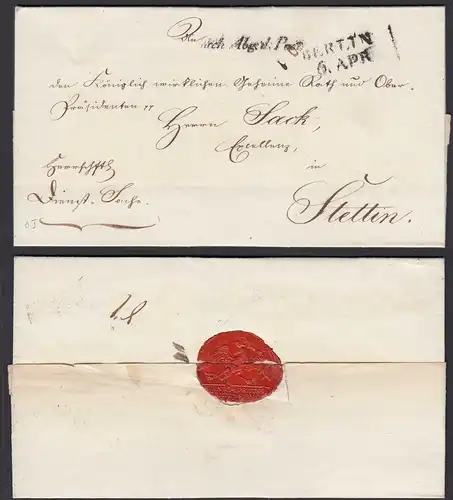 An
nach Abg. d. Post
BERLIN
6. APR
den Königlich wirklichen Geheime Rath und Ober-
Präsidenten pp
Herrn Sack,
Excellenz,
in
Stettin.
Herrschftl.
Dienst-Sache.